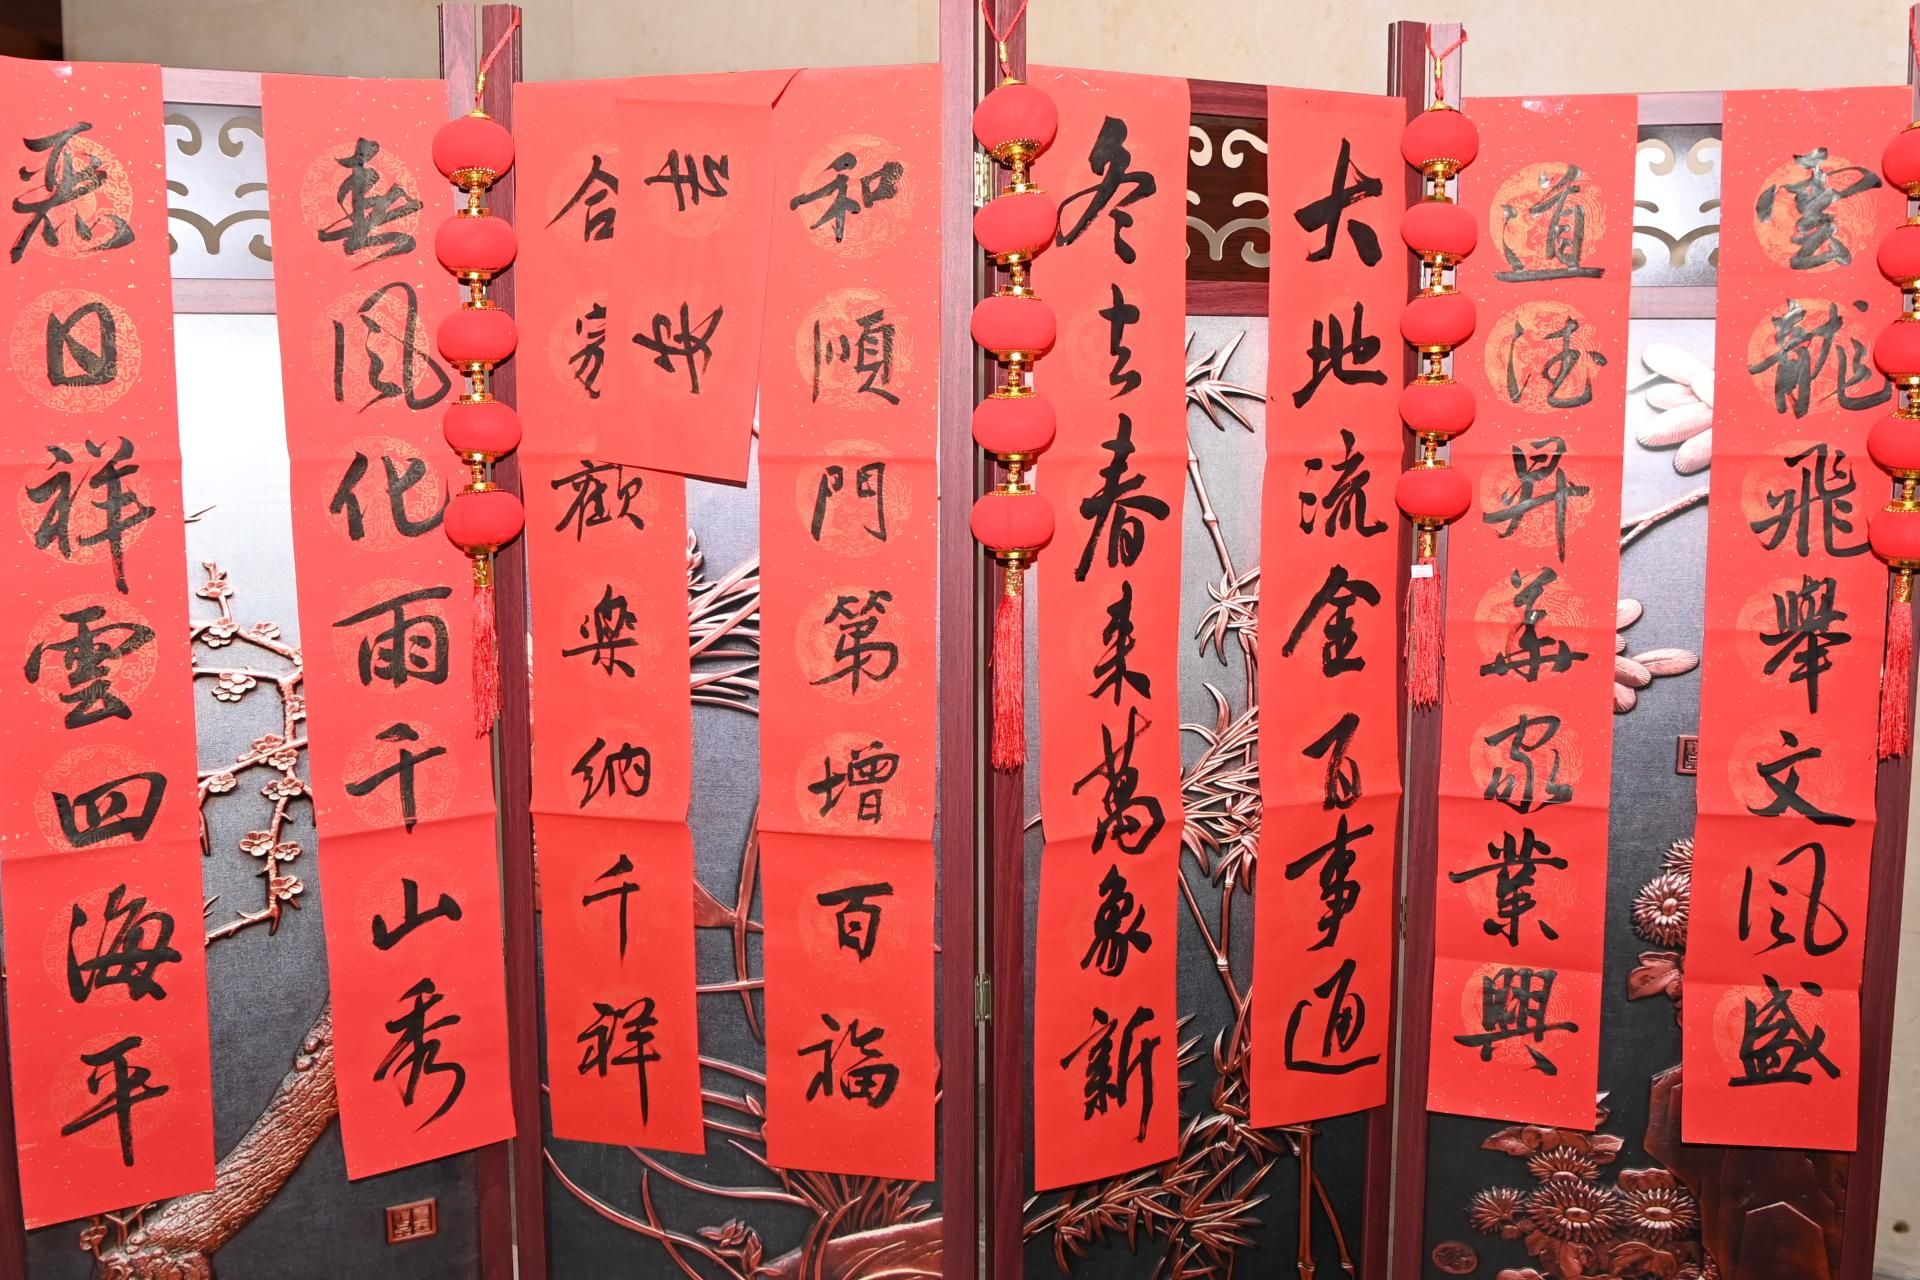 雲龍飛舉文風盛
道德昇華家業興
大地流金百事通
冬去春来萬象新
和順門第增百福
安
合家歡楽納千祥
春風化雨千山秀
麗日祥雲四海平